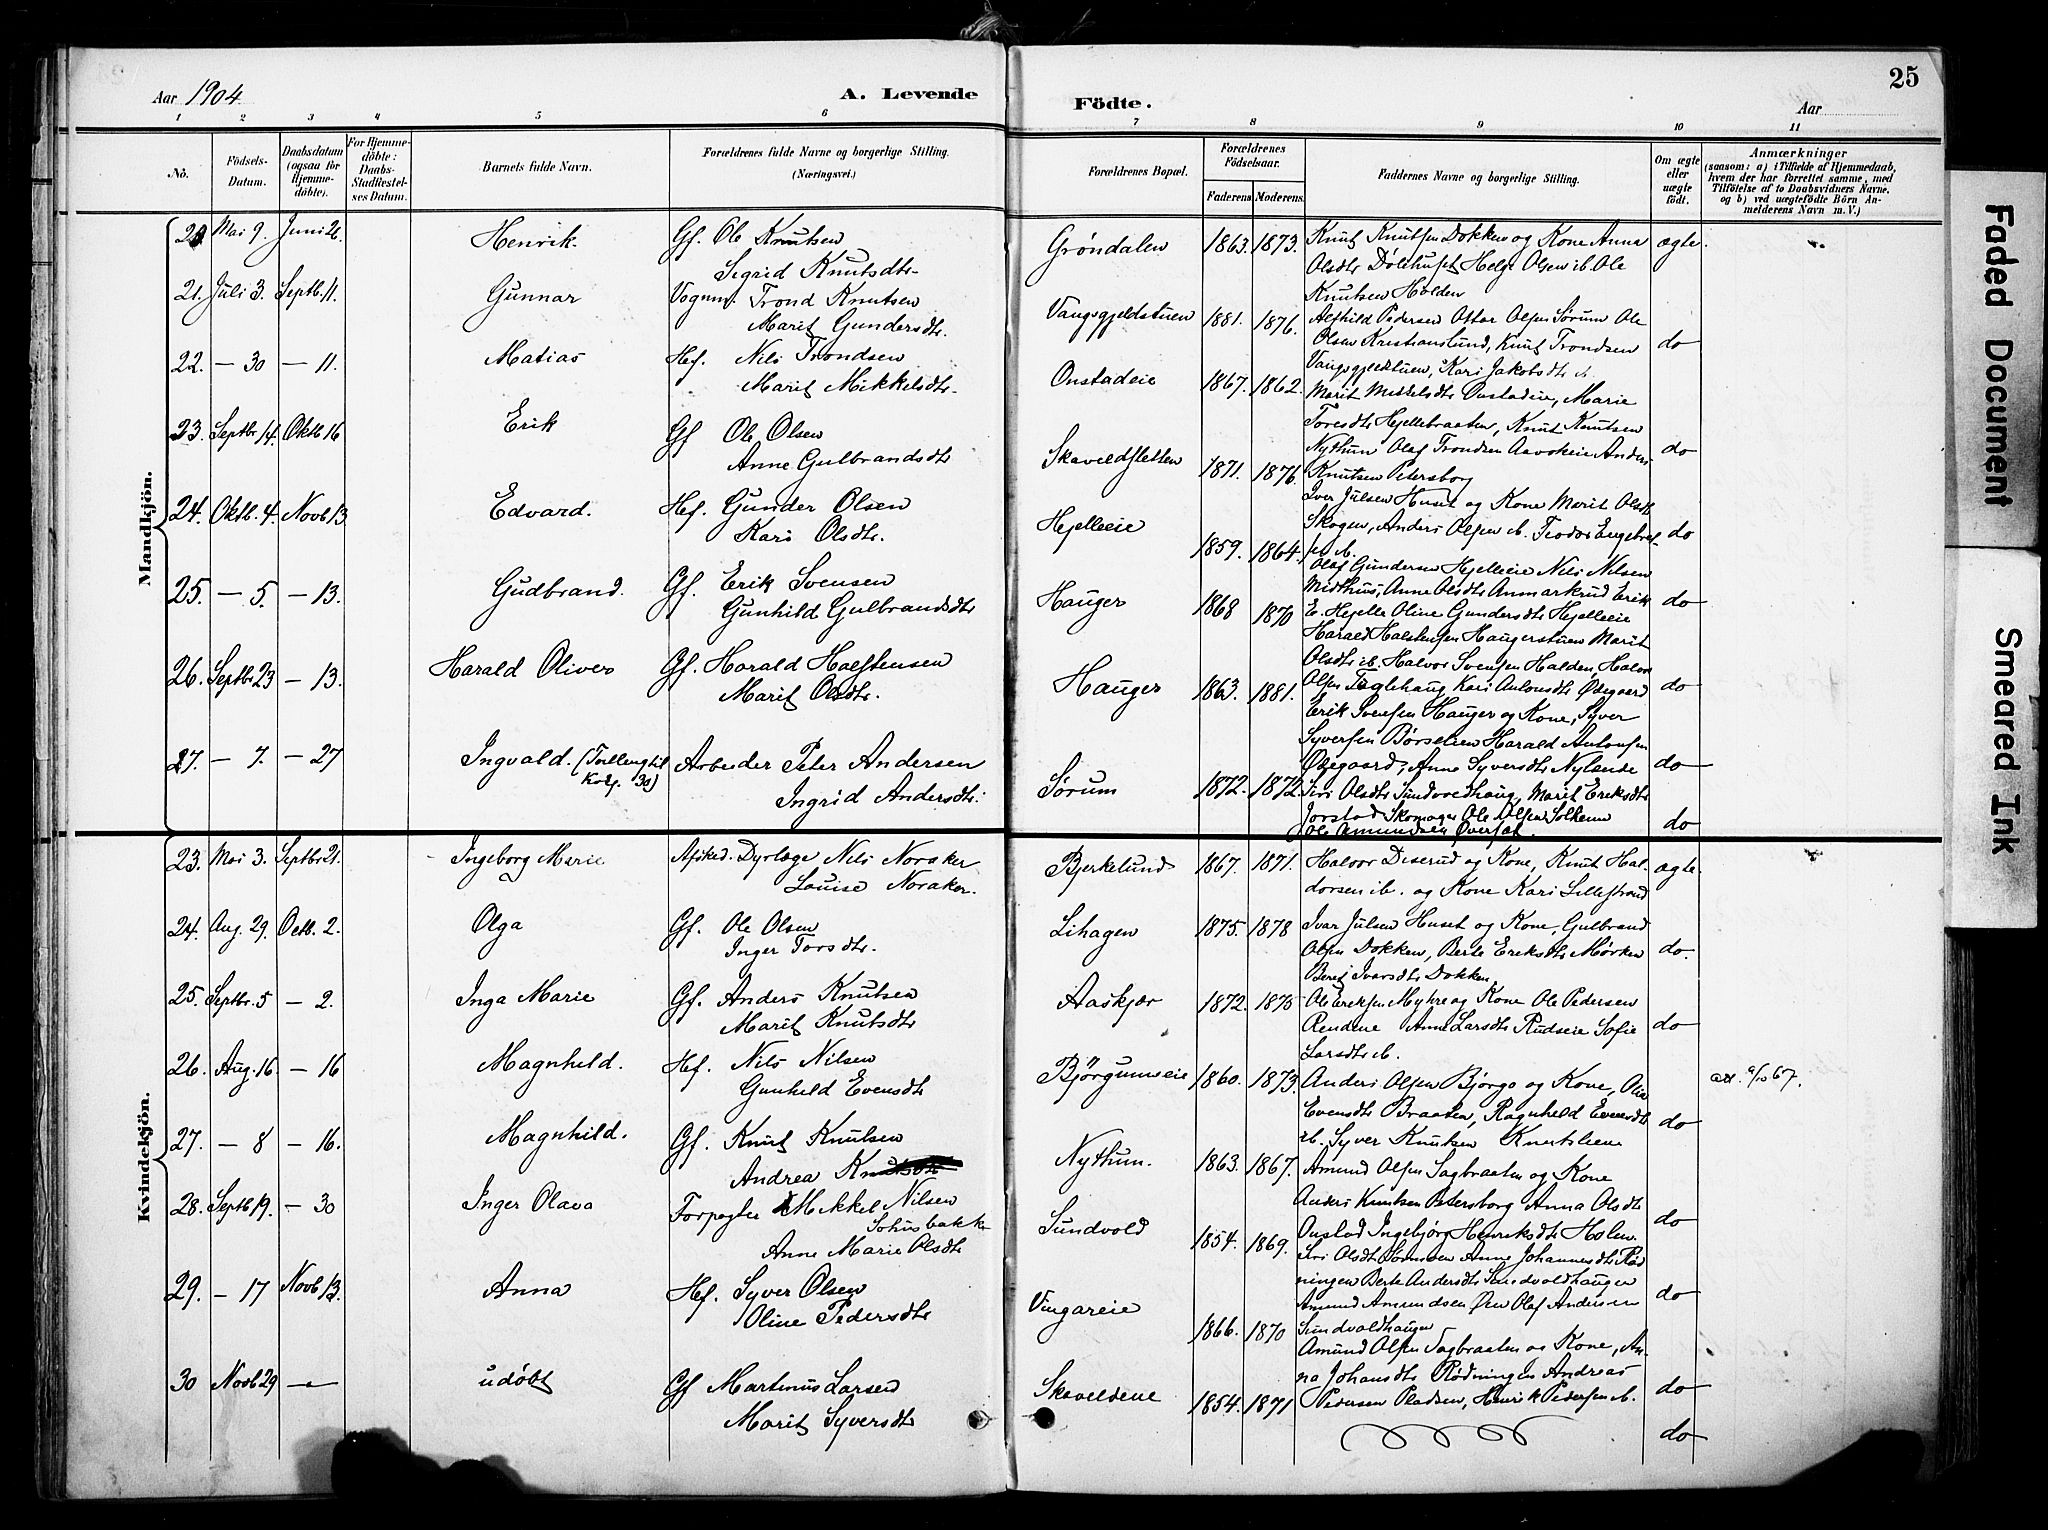 25
Aar 1904
A. Levende
Födte.
Aar
1 2 3 4 5 6 7 8 9 10 11
No.
Födsels-Datum.
Daabsdatum (ogsaa for Hjemme-döbte).
For Hjemme-döbte: Daabs-Stadfæstel-ses Datum.
Barnets fulde Navn.
Forældrenes fulde Navne og borgerlige Stilling. (Næringsvei.)
Forældrenes Bopæl.
Forældrenes Födselsaar.
Faderens Moderens.
Faddernes Navne og borgerlige Stilling.
Om ægte eller uægte födt.
Anmærkninger
(saasom: a) i Tilfælde af Hjemmedaab, hvem der har forrettet samme, med Tilföielse af to Daabsvidners Navne. og b) ved uægtefödte Börn An-melderens Navn m. V.)
Mandkjön.
20 Mai 9. Juni 26. Henrik Gf. Ole Knutsen Grøndalen 1863. 1873. Knut Knutsen Dokken og Kone Anna ægte
Sigrid Knutsdtr Olsdtr Helge Olsen ib. Ole
Knutsen Holden
21. Juli 3. Septb. 11. Gunnar Vognm. Trond Knutsen Vangsgjeldstuen 1881. 1876. Alfhild Pedersen Ottar Olsen Sørum Ole do
Marit Gundersdtr. Olsen Kristianslund, Knut Trondsen
22. — 30 — 11. Matias Hf. Nils Trondsen Onstadeie 1867. 1862. Kari Jakobsdtr
Marit Mikkelsdtr. Marit Onstadeie, Marie
23. Septbr 14. Oktb 16 Erik Gf Ole Olsen 1871. 1876. Hjellebraaten, Knut Knutsen do
Anne Gulbrandsdtr Nythun Olaf Trondsen Anders
Knutsen Petersborg
24. Oktb. 4. Novb 13 Edvard. Hf. Gunder Olsen Hjelleeie 1859. 1864. Iver Julsen Huset og Kone Marit Olsdtr do
Kari Olsdtr. Skogen, Anders Olsen ib.
25. — 5. — 13. Gudbrand. Gf. Erik Svensen Hauger 1868 1870 Olaf Gundersen Hjelleeie Nils Nilsen do
Gunhild Gulbrandsdtr Midthus, Anne Olsdtr Anmarkrud Erik
E. Hjelle Oline Gundersdtr Hjelleeie
26. Septbr 23 — 13. Harald Oliver Gf. Harald Halstensen Hauger 1863. 1881. Harald Halstensen Haugerstuen Marit do
Marit Olsdtr. Olsdtr ib. Halvor Svensen Halden, Halvor
Olsen Kari Antonsdtr Ødegaard
27. — 7. — 27 Ingvald. Arbeider Peter Andersen Sørum 1872. 1872. Erik Svensen Hauger og Kone, Syver do
Ingrid Andersdtr. Syversen Harald Antonsen
Ødegaard, Anne Syversdtr Nylende
Siri Olsdtr Sundvoldhaug, Marit Eriksdtr
Jorstad Skomager Ole Olsen Solheim do
Ole Amundsen
Kvindekjön.
23. Mai 3. Septbr 21. Ingeborg Marie Afsked. Dyrlæge Nils Noraker Bjerkelund 1867. 1871. Halvor Diserud og Kone, Knut Hal- ægte.
Louise Noraker. dorsen ib. og Kone Kari Lillestrand
24. Aug. 29. Octb. 2. Olga Gf. Ole Olsen Lihagen 1875. 1878 Ivar Julsen Huset og Kone, Gulbrand do.
Inger Torsdtr. Olsen Dokken, Berte Eriksdtr Mørken
Berit Ivarsdtr Dokken.
25. Septbr. 5 — 2. Inga Marie Gf. Anders Knutsen Aaskjær 1872. 1875 Ole Eriksen Myhre og Kone Ole Pedersen do
Marit Knutsdtr Rendene Anne Larsdtr Rudseie Sofie
Larsdtr ib.
26. Aug. 16. — 16 Magnhild. Hf. Nils Nilsen Bjørgumseie 1860. 1873. Anders Olsen Bjørgo og Kone, do
Gunhild Evensdtr Evensdtr Braaten, Ragnhild Evensdtr
27. — 8 — 16. Magnhild. Gf. Knut Knutsen Nythun. 1863. 1867. ib. Syver Knutsen Knutslien
Andrea Amund Olsen Sagbraaten og Kone
28. Septb 19. — 30 Inger Olava Forpagter Mikkel Nilsen Sundvold 1854. 1869. Anders Knutsen Petersborg Anna Olsdtr do
Anne Marie Olsdtr Onstad Ingebjørg Henriksdtr Holen.
Siri Olsdtr Anne Johannesdtr Rød-
29. — 17 Novb 13. Anna Hf. Syver Olsen Vingareie 1866. 1870 ningen Berte Andersdtr Sundvoldhaugen do
Oline Pedersdtr Amund Amundsen Øen Olaf Andersen
Sundvoldhaugen
30 Novb 29 — udøbt Gf Martinus Larsen Skaveldene 1854. 1871 Amund Olsen Sagbraaten og Kone, An- do
Marit Syversdtr na Johansdtr Rødningen Andreas
Pedersen Pladsen, Henrik Pedersen ib.
do
Faded Document
Smeared Ink